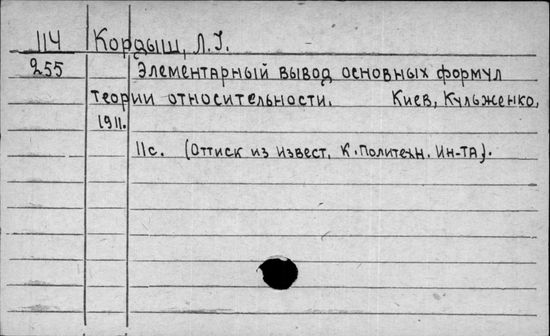 114 Кордыш, Л.І.
255 Элементарный вывод основных формул
теории относительности. Киев, Кульженко,
1911.
11с. (Оттиск из извест. К.Политехн. Ин-та).